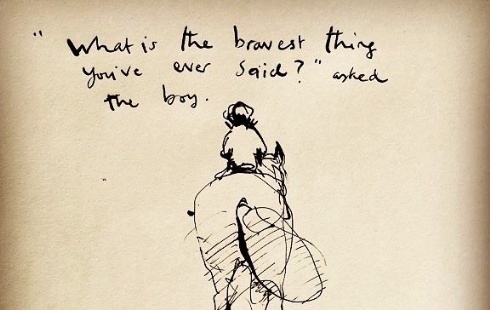 "What is the bravest thing
you've ever said?" asked
the boy.